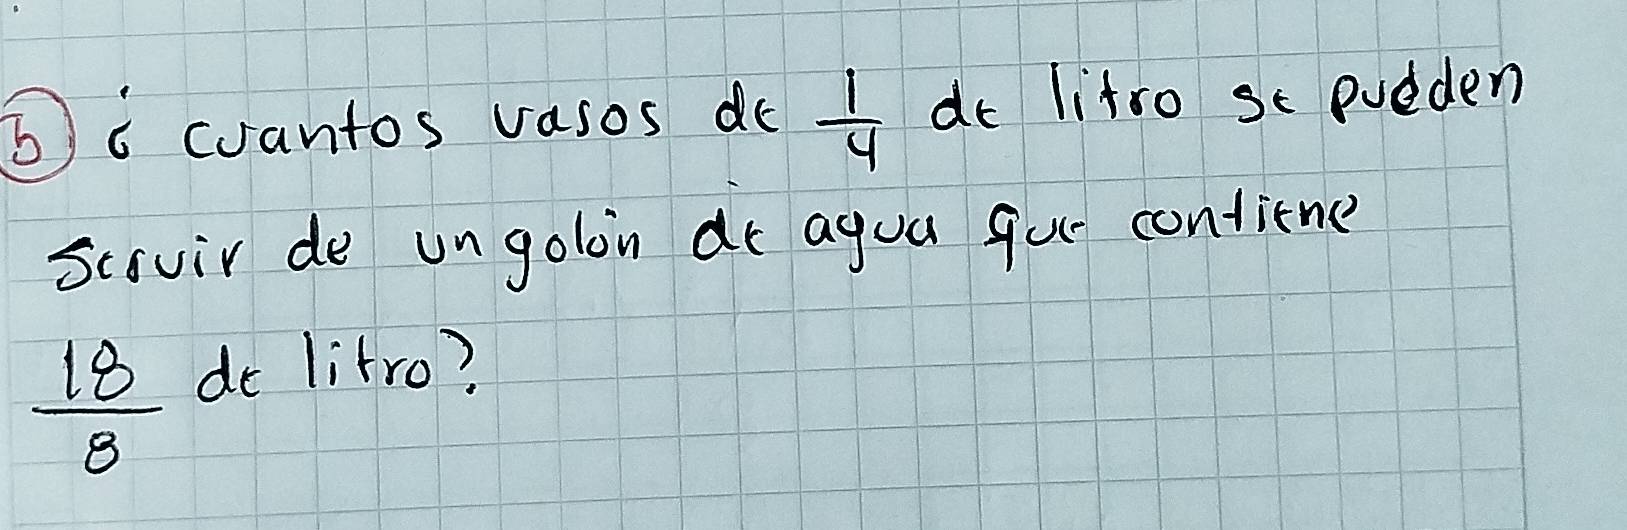 b) ¿ cuantos vasos de 1/4 de litro se pueden
servir de un golón de agua que contiene
18/8 de litro?